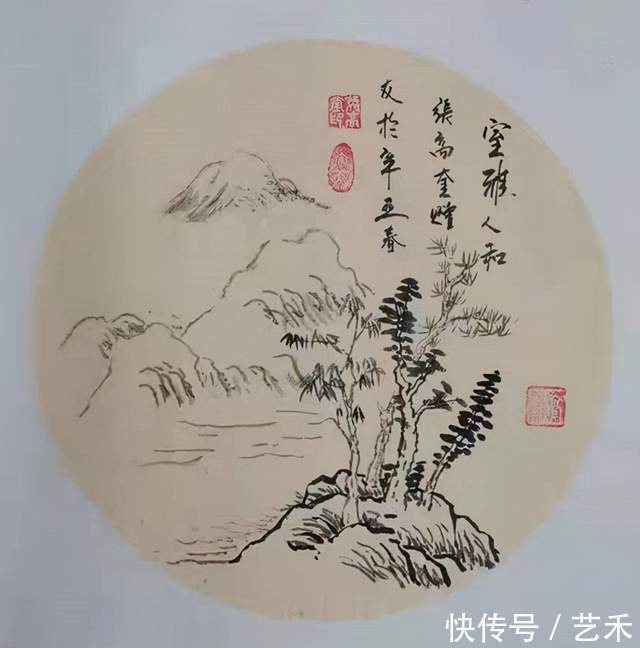 室雅人和
張高奎贈
友於辛丑春
快传号 / 艺禾